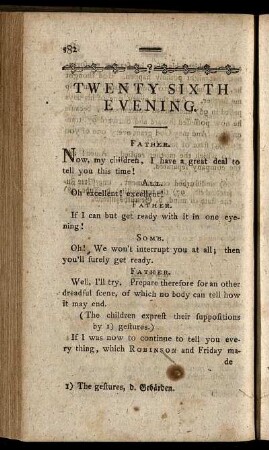 182
TWENTY SIXTH
EVENING.
FATHER.
Now, my children, I have a great deal to
tell you this time!
ALL.
Oh excellent! excellent!
FATHER.
If I can but get ready with it in one eve-
ning!
SOME.
Oh! We won't interrupt you at all; then
you'll surely get ready.
FATHER.
Well, I'll try. Prepare therefore for an other
dreadful scene, of which no body can tell how
it may end.
(The children expreſs their ſuppoſitions
by 1) geſtures.)
If I was now to continue to tell you eve-
ry thing, which ROBINSON and Friday ma-
de
1) The geſtures, d. Gebärden.